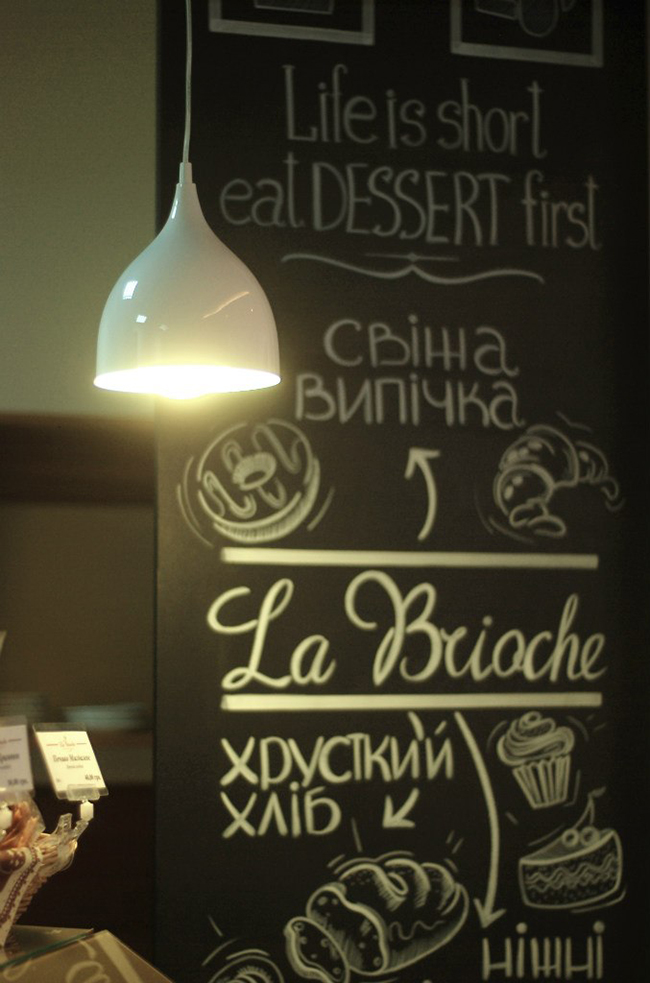 Life is short
eat DESSERT first
свіжа
випічка
La Brioche
хрусткий
хліб
ніжні